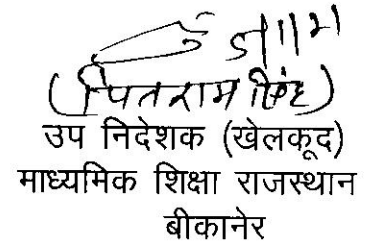 (पितराम सिंह)
उप निदेशक (खेलकूद)
माध्यमिक शिक्षा राजस्थान
बीकानेर